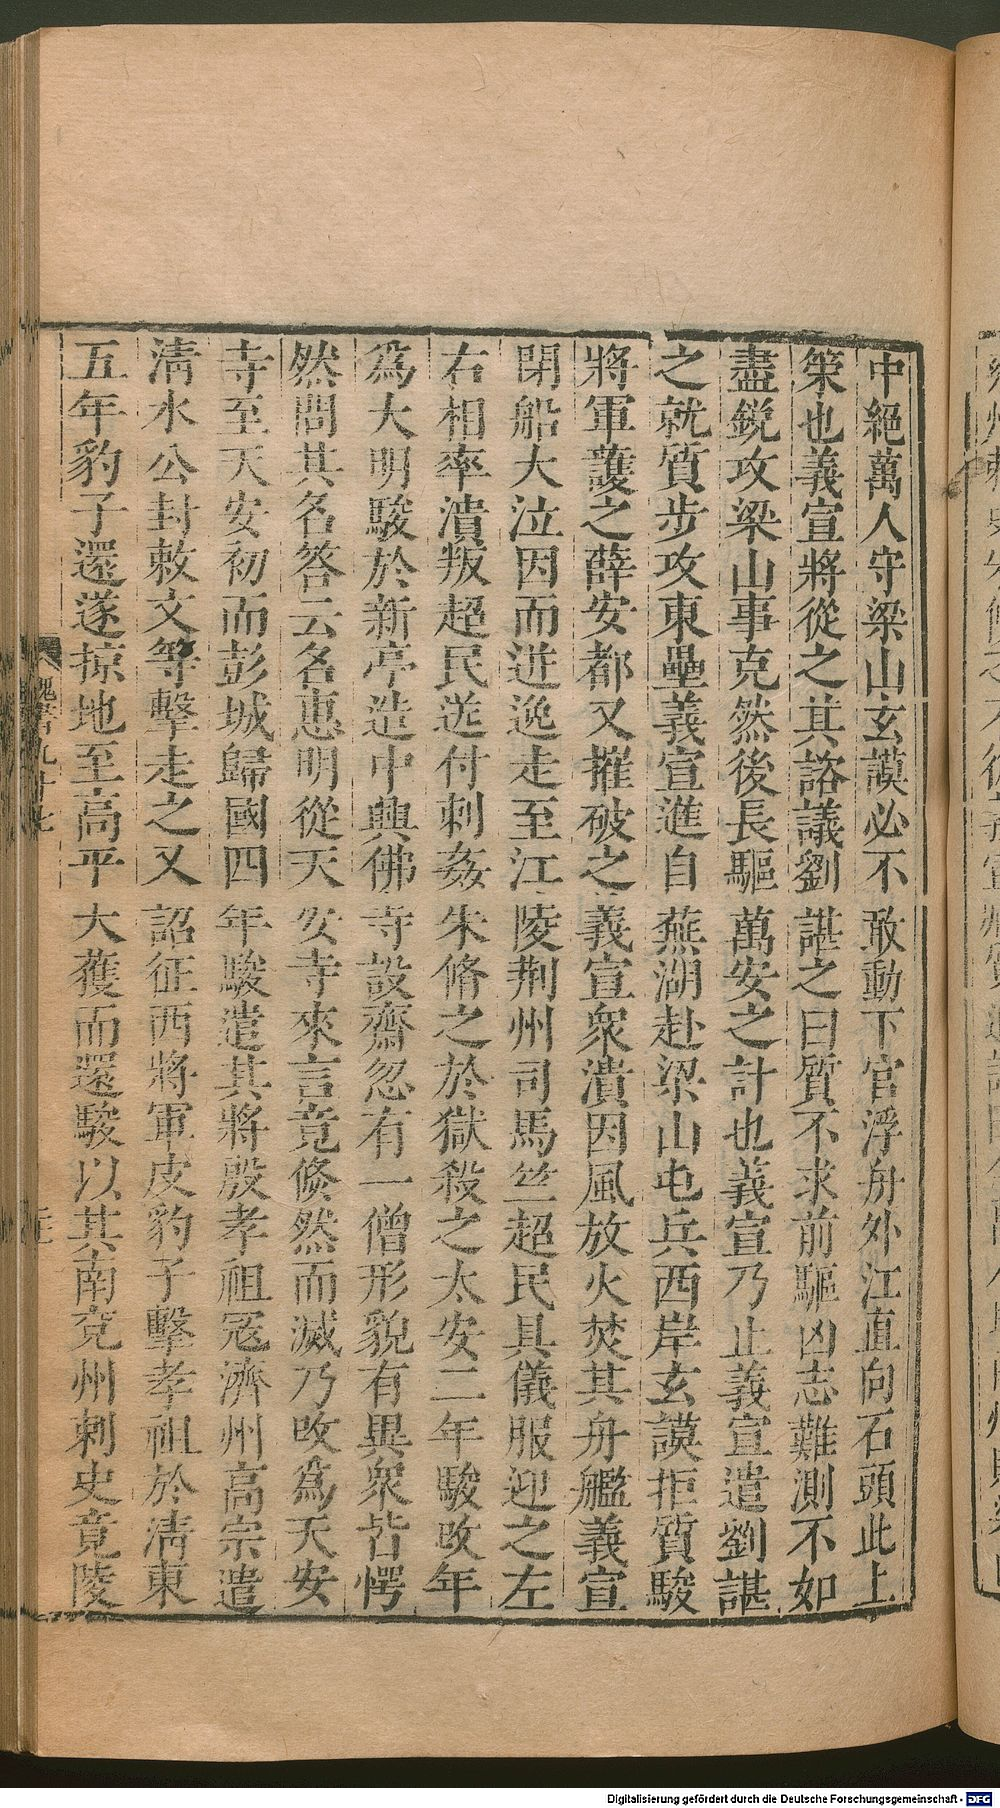 中絕萬人守梁山玄謨必不敢動下官浮舟外江直向石頭此上
策也義宣將從之其諮議劉諶之曰質不求前驅凶志難測不如
盡銳攻梁山事克然後長驅萬安之計也義宣乃止義宣遣劉諶
之就質步攻東壘義宣進自蕪湖赴梁山屯兵西岸玄謨拒質駿
將軍護之薛安都又摧破之義宣衆潰因風放火焚其舟艦義宣
閉船大泣因而迸逸走至江陵荆州司馬竺超民具儀服迎之左
右相率潰叛超民送付刺姦朱脩之於獄殺之太安二年駿改年
爲大明駿於新亭造中興佛寺設齋忽有一僧形貌有異衆皆愕
然問其名答云名惠明從天安寺來言竟倏然而滅乃改爲天安
寺至天安初而彭城歸國四年駿遣其將殷孝祖冦濟州高宗遣
淸水公封敕文等擊走之又詔征西將軍皮豹子擊孝祖於淸東
五年豹子還遂掠地至高平大獲而還駿以其南兖州刺史竟陵
魏書九十七
Digitalisierung gefördert durch die Deutsche Forschungsgemeinschaft - DFG